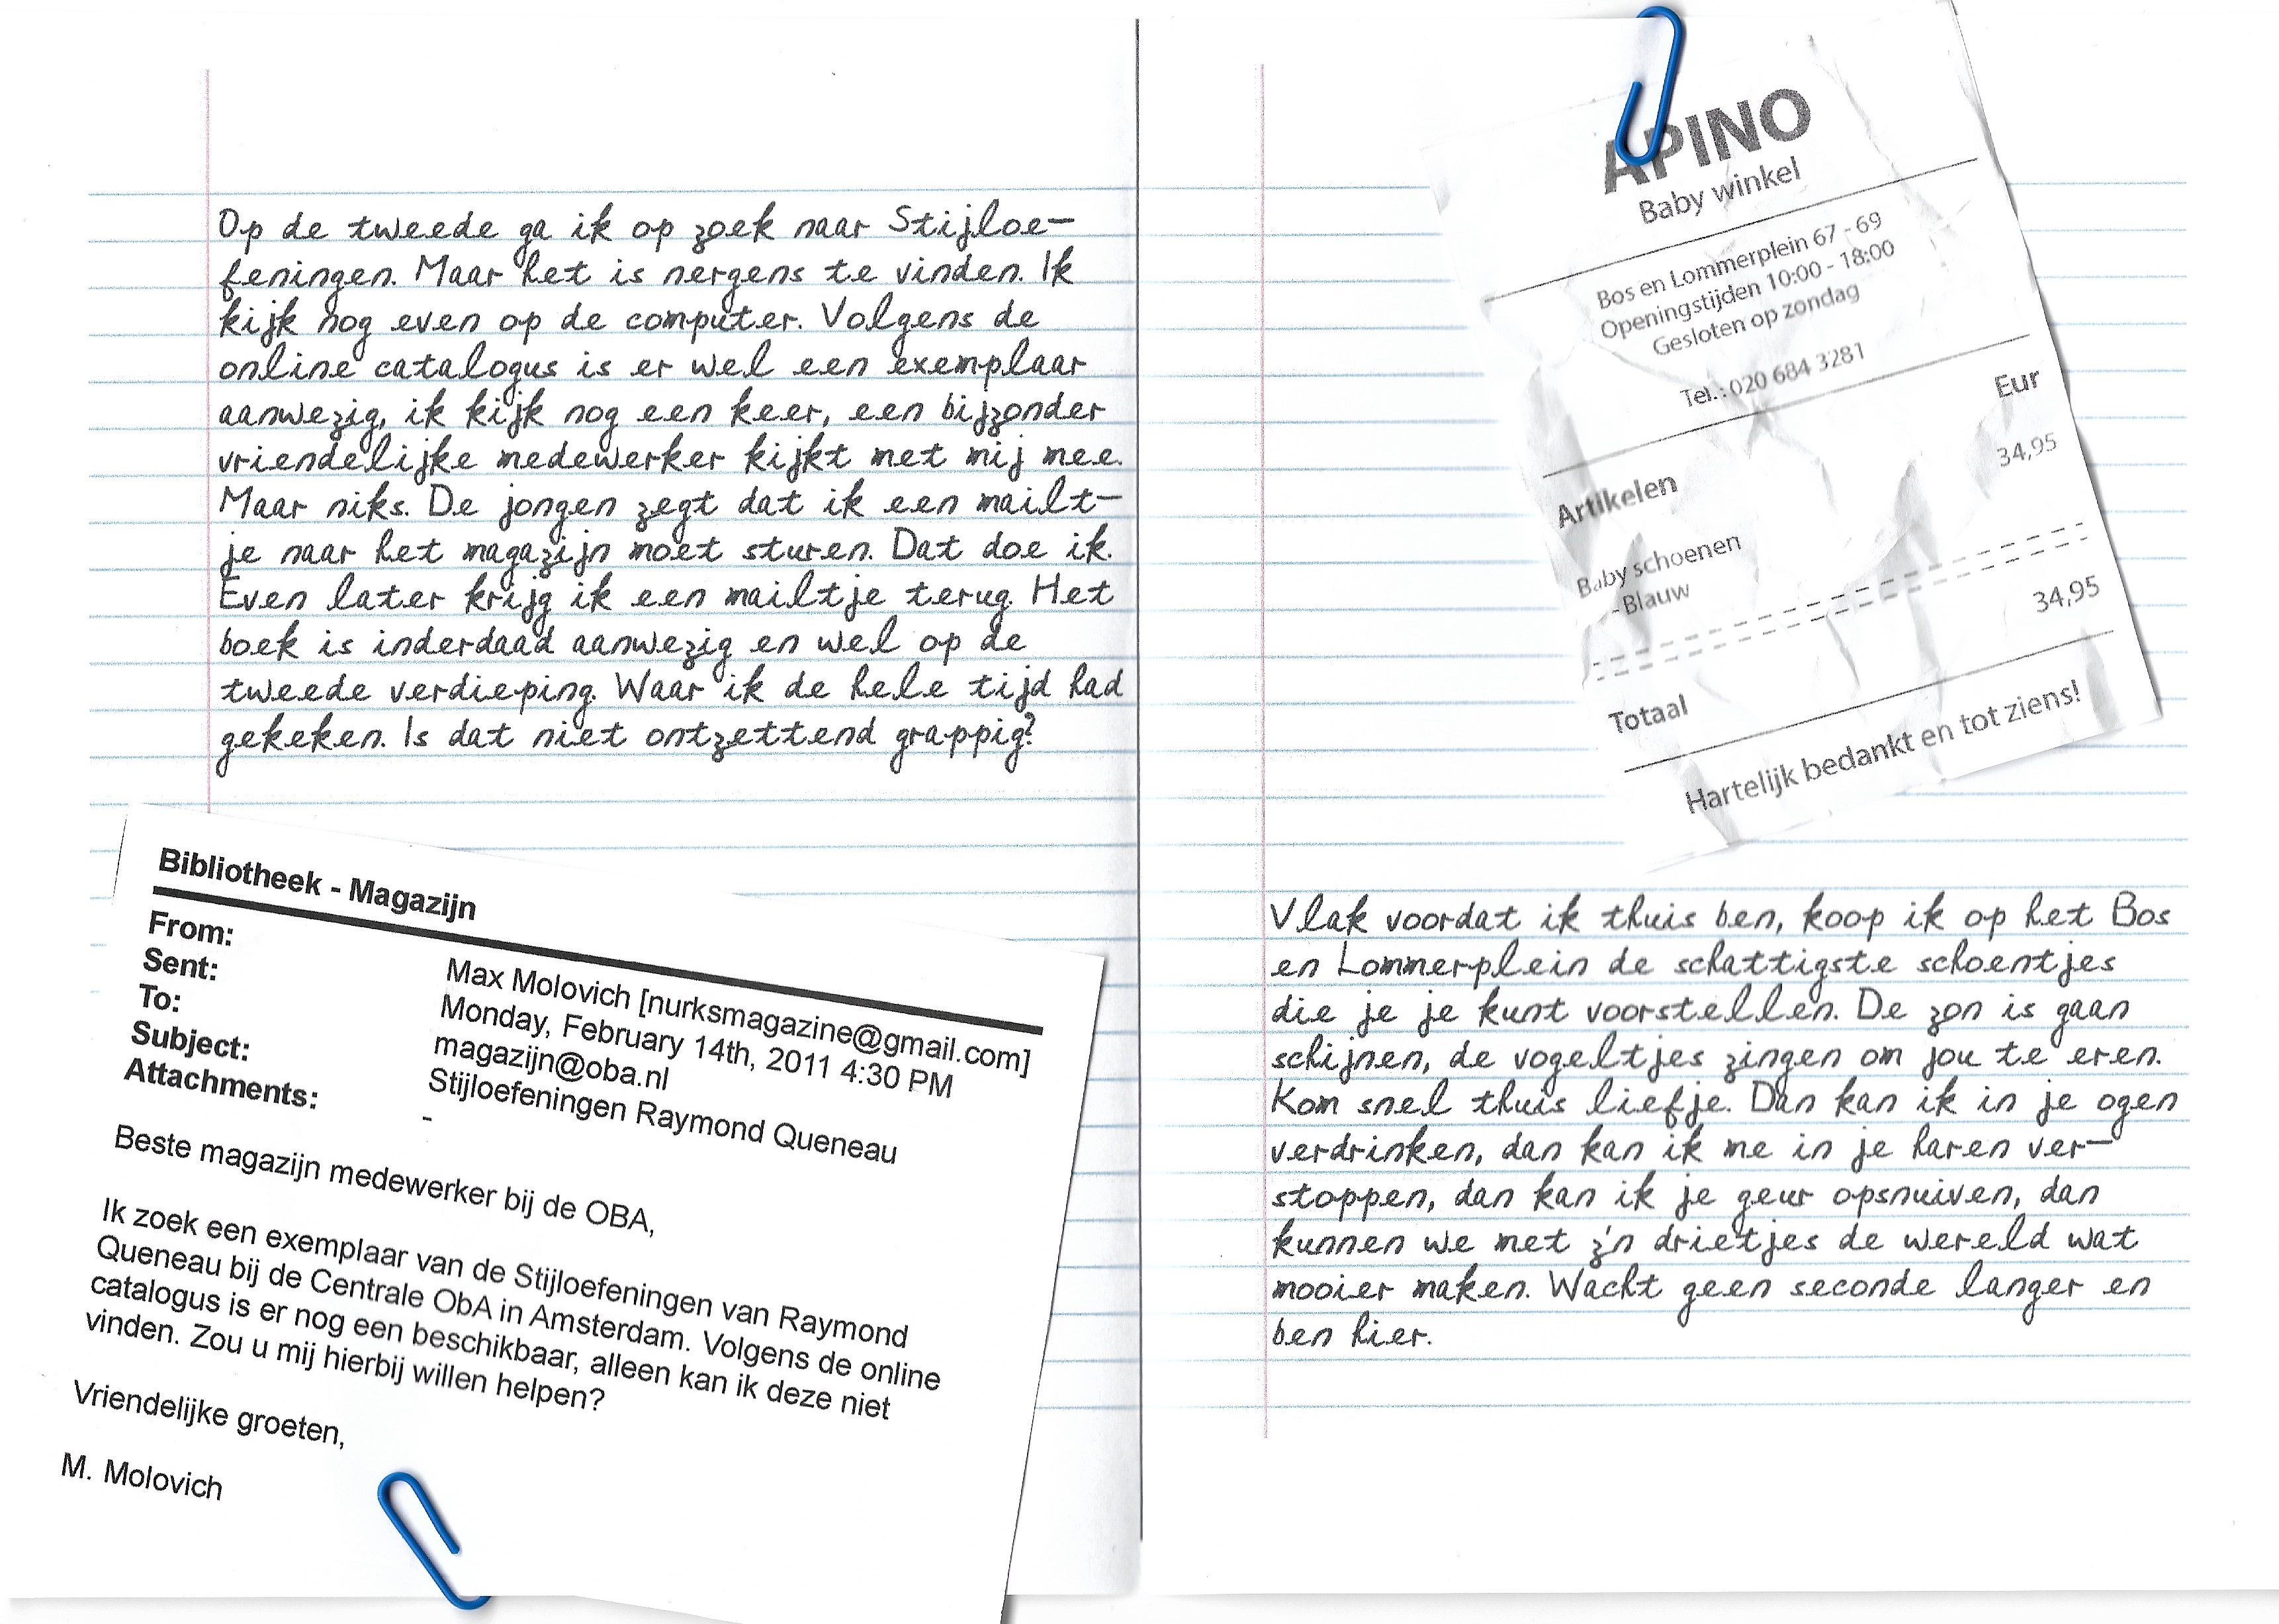 Op de tweede ga ik op zoek naar Stijloe-
feningen. Maar het is nergens te vinden. Ik
kijk nog even op de computer. Volgens de
online catalogus is er wel een exemplaar
aanwezig, ik kijk nog een keer, een bijzonder
vriendelijke medewerker kijkt met mij mee.
Maar niks. De jongen zegt dat ik een mailt-
je naar het magazijn moet sturen. Dat doe ik.
Even later krijg ik een mailtje terug. Het
boek is inderdaad aanwezig en wel op de
tweede verdieping. Waar ik de hele tijd had
gekeken. Is dat niet ontzettend grappig?
Bibliotheek - Magazijn
From: Max Molovich [nurksmagazine@gmail.com]
Sent: Monday, February 14th, 2011 4:30 PM
To: magazijn@oba.nl
Subject: Stijloefeningen Raymond Queneau
Attachments: -
Beste magazijn medewerker bij de OBA,
Ik zoek een exemplaar van de Stijloefeningen van Raymond
Queneau bij de Centrale ObA in Amsterdam. Volgens de online
catalogus is er nog een beschikbaar, alleen kan ik deze niet
vinden. Zou u mij hierbij willen helpen?
Vriendelijke groeten,
M. Molovich
APINO
Baby winkel
Bos en Lommerplein 67 - 69
Openingstijden 10:00 - 18:00
Gesloten op zondag
Tel.: 020 684 3281
Artikelen Eur
Baby schoenen 34,95
- Blauw
Totaal 34,95
Hartelijk bedankt en tot ziens!
Vlak voordat ik thuis ben, koop ik op het Bos
en Lommerplein de schattigste schoentjes
die je je kunt voorstellen. De zon is gaan
schijnen, de vogeltjes zingen om jou te eren.
Kom snel thuis liefje. Dan kan ik in je ogen
verdrinken, dan kan ik me in je haren ver-
stoppen, dan kan ik je geur opsnuiven, dan
kunnen we met z'n drietjes de wereld wat
mooier maken. Wacht geen seconde langer en
ben hier.